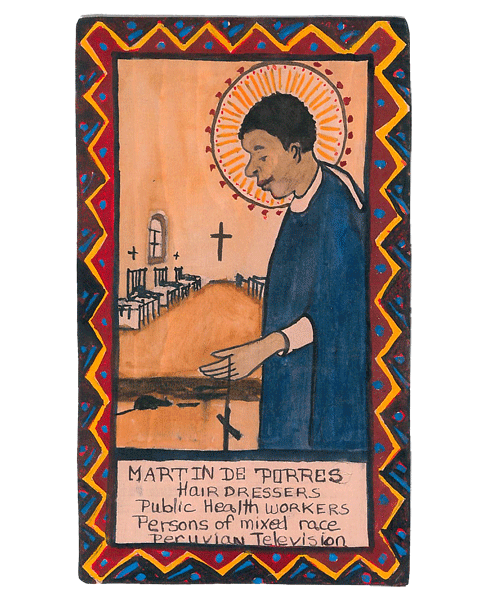 MARTIN DE PORRES
HAIRDRESSERS
Public Health WORKERS
Persons of mixed race
Peruvian Television